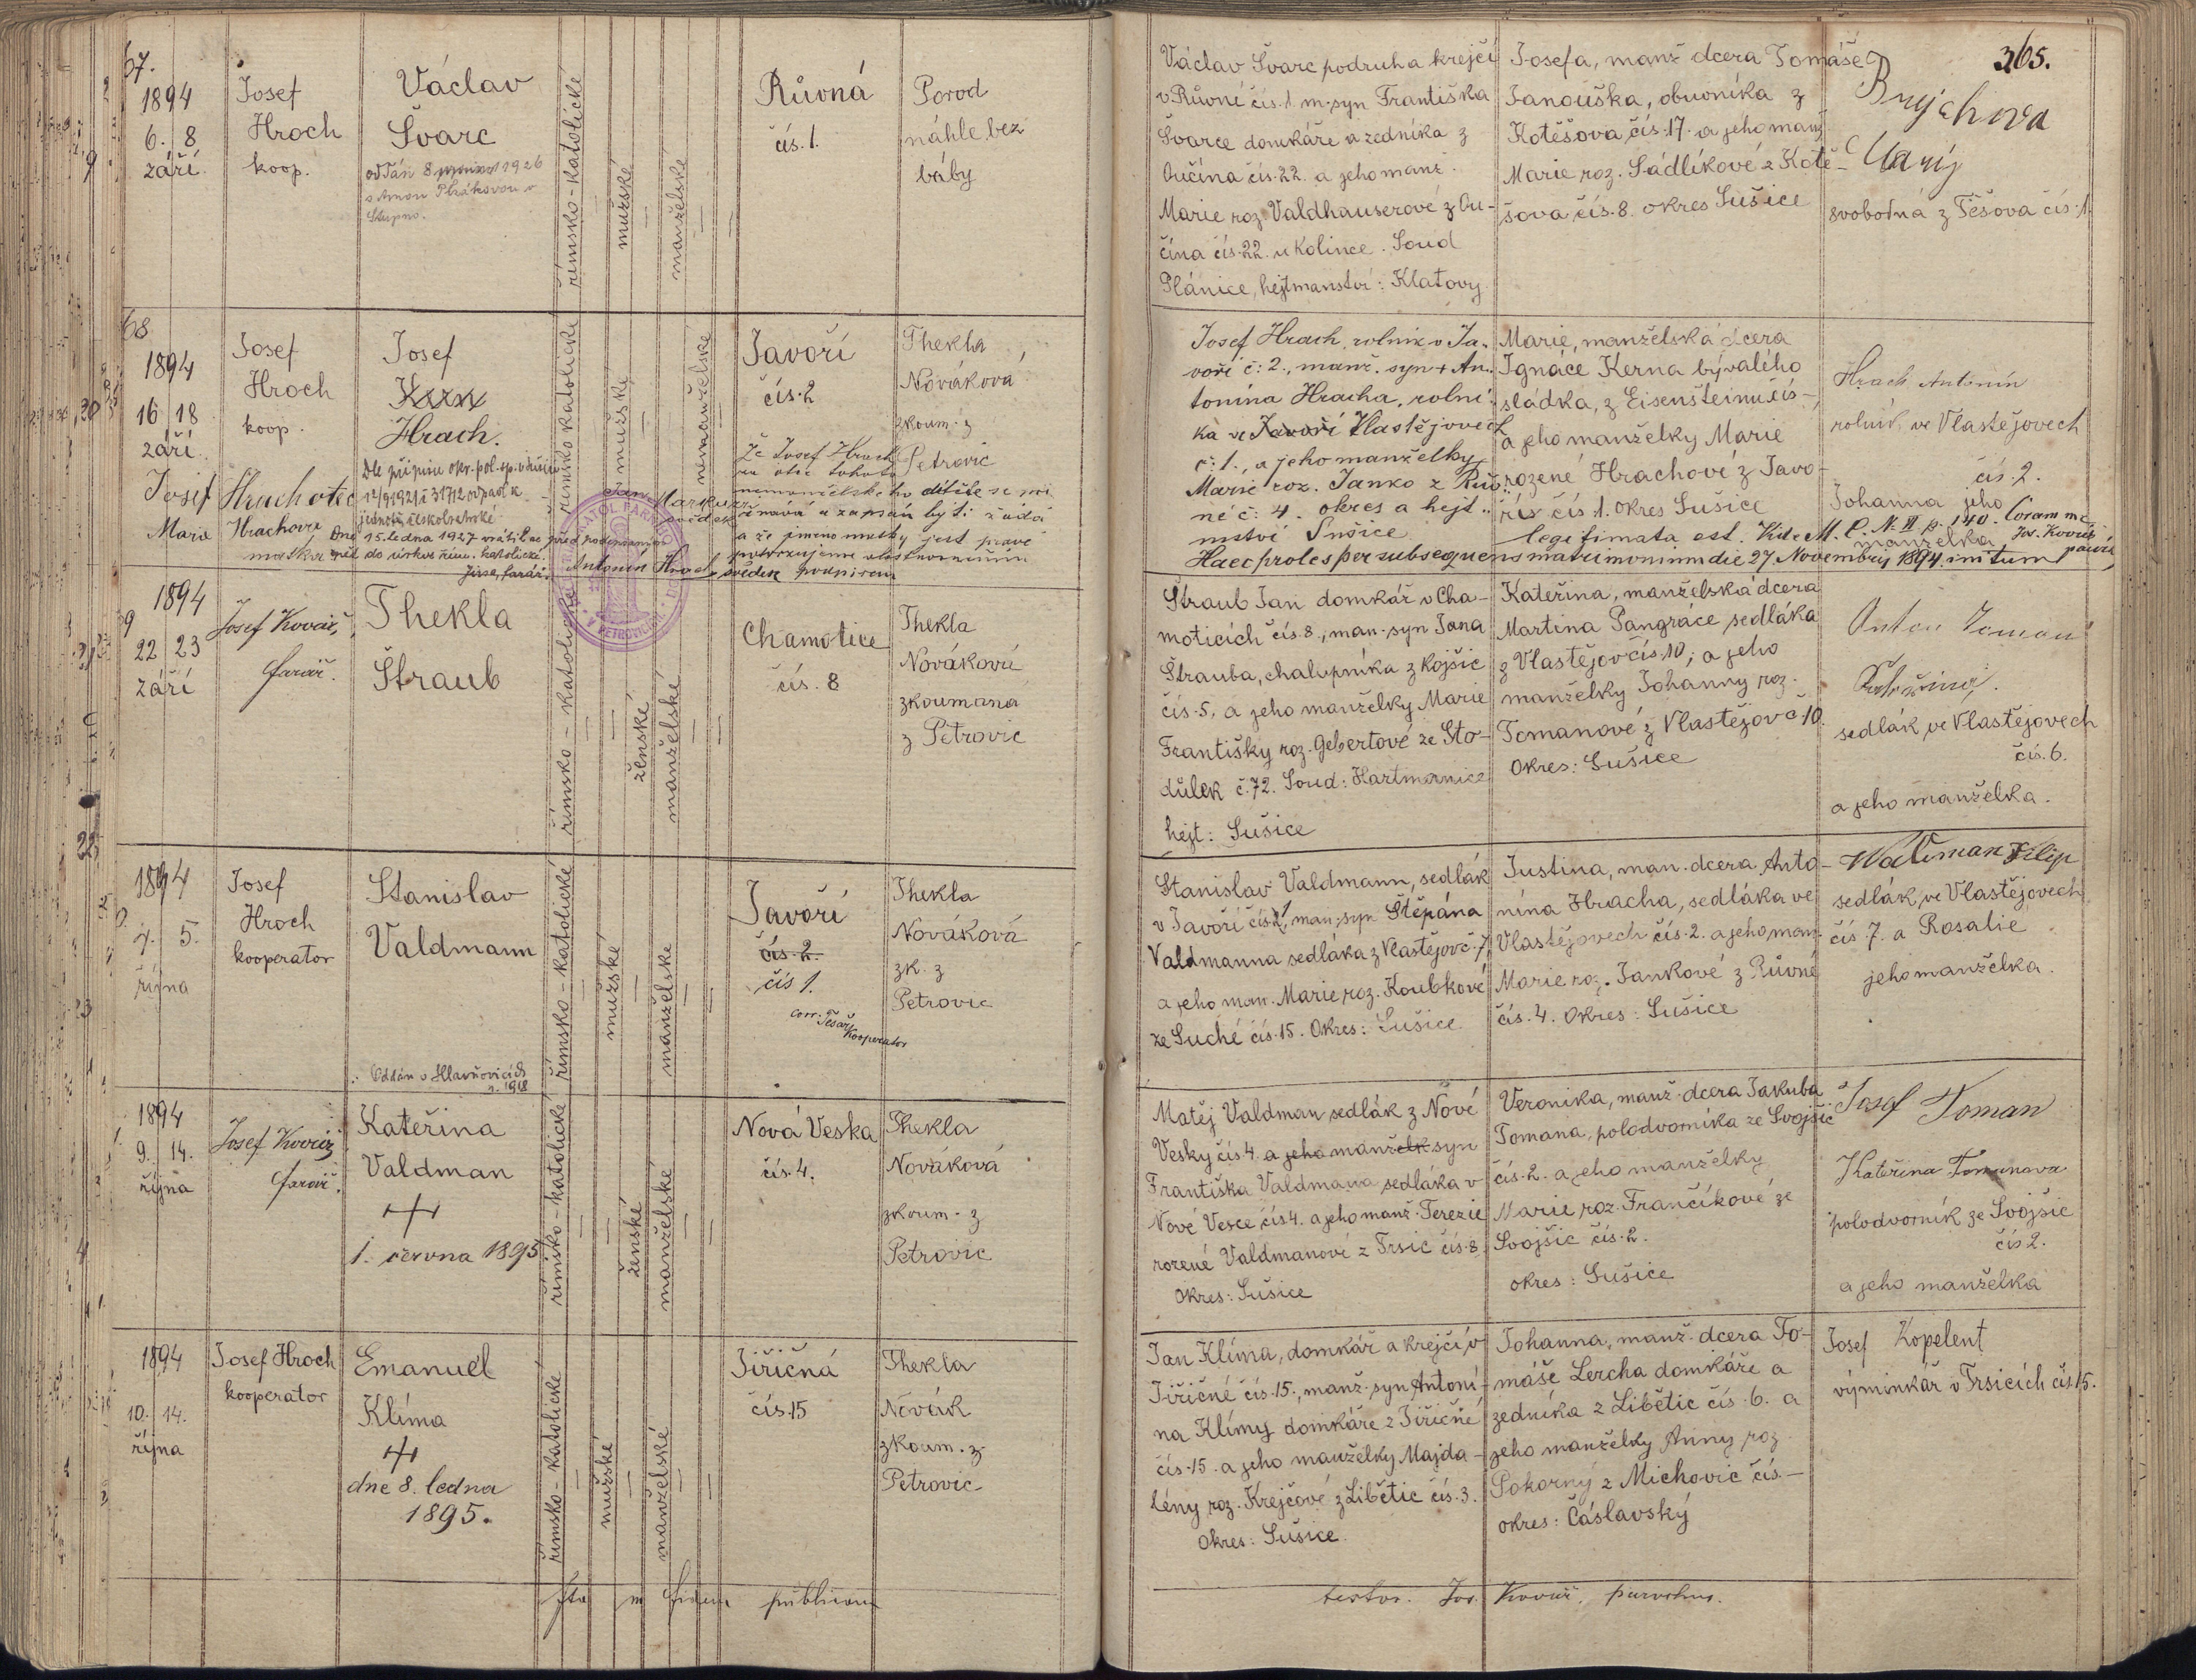 365.
67.
1894
6. 8
září.
Josef
Hroch
koop.
Václav
Švarc
římsko-katolické
mužské
manželské
Růvná
čís. 1.
Porod
náhle bez
báby
Václav Švarc podruh a krejčí
v Růvné čís. 1. m. syn Františka
Švarce domkáře a zedníka z
Oučína čís. 22. a jeho manž.
Marie roz. Valdhauserové z Ou-
čína čís. 22. u Kolince. Soud
Plánice, hejtmanství: Klatovy
Josefa, manž dcera Tomáše
Janouška, obuvníka z
Kotěšova čís. 17. a jeho manž
Marie roz. Sádlíkové z Kotě-
šova čís. 8. okres Sušice
Brychova
Marij
svobodná z Těšova čís. 1.
68
1894
16 18
září.
Josef
Hroch
koop.
Josef
Kern
Hrach.
Dle přípisu okr. pol. sp. v Sušici
Josef Hrach otec
Marie Hrachova
matka
15. ledna 1927 vrátil se
zpět do církve řím. katolické.
Jirse, farář.
římsko katolické
mužské
nemanželské
Javoří
čís. 2
Thekla
Nováková
zkoum. z
Petrovic
Že Josef Hrach
za otce tohoto
nemanželského dítěte se při
znává a zapsán býti žádá
a že jméno matky jest pravé
potvrzujeme vlastnoručním
podpisem
Jan Markuzi
svědek
Antonín Hrach, svědek
Josef Hrach, rolník v Ja-
voří č: 2., manž. syn + An-
tonína Hracha, rolní-
ka ve Javoří Vlastějovech
č: 1., a jeho manželky
Marie roz. Janko z Rův-
né č: 4. okres a hejt-
mství Sušice
Marie, manželská dcera
Ignáce Kerna bývalého
sládka, z Eisenšteinu čís-
a jeho manželky Marie
rozené Hrachové z Javo-
říš čís. 1. okres Sušice
Hrach Antonín
rolník ve Vlastějovech
čís. 2.
Johanna jeho
manželka
legitimata est. Vide M. C. N. II. p. 140. Coram me
Jos. Kovář
Haec proles per subsequens matrimonium die 27. Novembris 1894. initum
9
1894
22 23
září
Josef Kovář,
farář.
Thekla
Štraub
římsko-katolické
ženské
manželské
Chamotice
čís. 8
Thekla
Nováková
zkoumaná
z Petrovic
Štraub Jan domkář v Cha-
moticích čís. 8., man. syn Jana
Štrauba, chalupníka z Kojšic
čís. 5, a jeho manželky Marie
Františky roz. Gebertové ze Sto-
důlek č. 72. Soud: Hartmanice
hejt: Sušice
Kateřina, manželská dcera
Martina Pangráce sedláka
z Vlastějov čís. 10; a jeho
manželky Johanny roz.
Tomanové z Vlastějov č 10.
Okres: Sušice
Anton Toman
Kateřina,
sedlák ve Vlastějovech
čís. 6.
a jeho manželka.
1894
4. 5.
října
Josef
Hroch
kooperator
Stanislav
Valdmann
Oddán v Hlavňovicích
r. 1918
římsko-katolické
mužské
manželské
Javoří
čís. 2.
čís 1.
corr. Tesař
kooperator
Thekla
Nováková
zk. z
Petrovic
Stanislav Valdmann, sedlák
v Javoří čís. 1, man. syn Štěpána
Valdmanna sedláka z Vlastějov č. 7,
a jeho man. Marie roz. Koubkové
ze Suché čís. 15. Okres: Sušice
Justina, man. dcera Anto-
nína Hracha, sedláka ve
Vlastějovech čís. 2. a jeho man.
Marie roz. Jankové z Růvné
čís. 4. Okres: Sušice
Waltman Filip
sedlák ve Vlastějovech
čís. 7. a Rosalie
jeho manželka.
1894
9. 14.
října
Josef Kovář
farář.
Kateřina
Valdman
+
1. června 1895
římsko-katolické
ženské
manželské
Nová Veska
čís. 4.
Thekla
Nováková
zkoum. z
Petrovic
Matěj Valdman sedlák z Nové
Vesky čís 4. a jeho manželk syn
Františka Valdmana sedláka v
Nové Vesce čís 4. a jeho manž. Terezie
rozené Valdmanové z Trsic čís. 8.
Okres: Sušice
Veronika, manž. dcera Jakuba
Tomana, polodvorníka ze Svojšic
čís. 2. a jeho manželky
Marie roz. Frančíkové ze
Svojšic čís. 2.
okres: Sušice
Josef Toman
Kateřina Tomanova
polodvorník ze Svojšic
čís 2.
a jeho manželka
1894
10. 14.
října
Josef Hroch
kooperator
Emanuel
Klíma
+
dne 8. ledna
1895.
římsko-katolické
mužské
manželské
Jiřičná
čís. 15
Thekla
Novák
zkoum. z
Petrovic
Jan Klíma, domkář a krejčí v
Jiřičné čís. 15., manž. syn Antoní-
na Klímy domkáře z Jiřičné
čís. 15. a jeho manželky Majda-
lény roz. Krejčové z Libětic čís. 3.
Okres: Sušice.
Johanna, manž. dcera To-
máše Lercha domkáře a
zedníka z Libětic čís. 6. a
jeho manželky Anny roz
Pokorný z Michovic čís.-
okres: Čáslavský
Josef Kopelent
výminkář v Trsicích čís. 15.
Ita in fidem publicam
testor. Jos. Kovář, parochus.